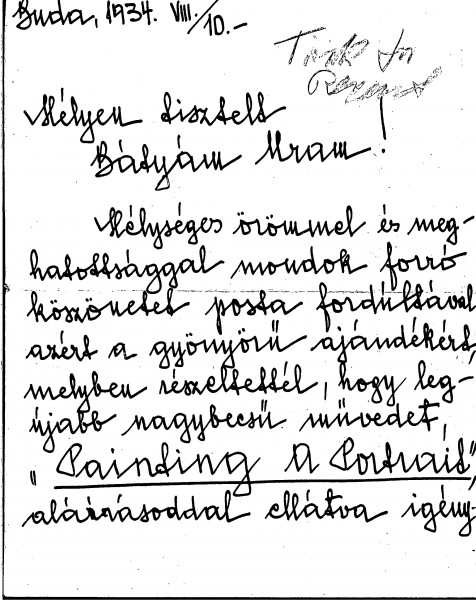 Buda, 1934. VIII./10.-
Mélyen tisztelt
Bátyám Uram!
Mélységes örömmel és meg-
hatottsággal mondok forró
köszönetet posta fordúltával
azért a gyönyörű ajándékért,
melyben részeltettél, hogy leg-
újabb nagybecsű művedet,
„Painting A Portrait"
aláírásoddal ellátva igény-